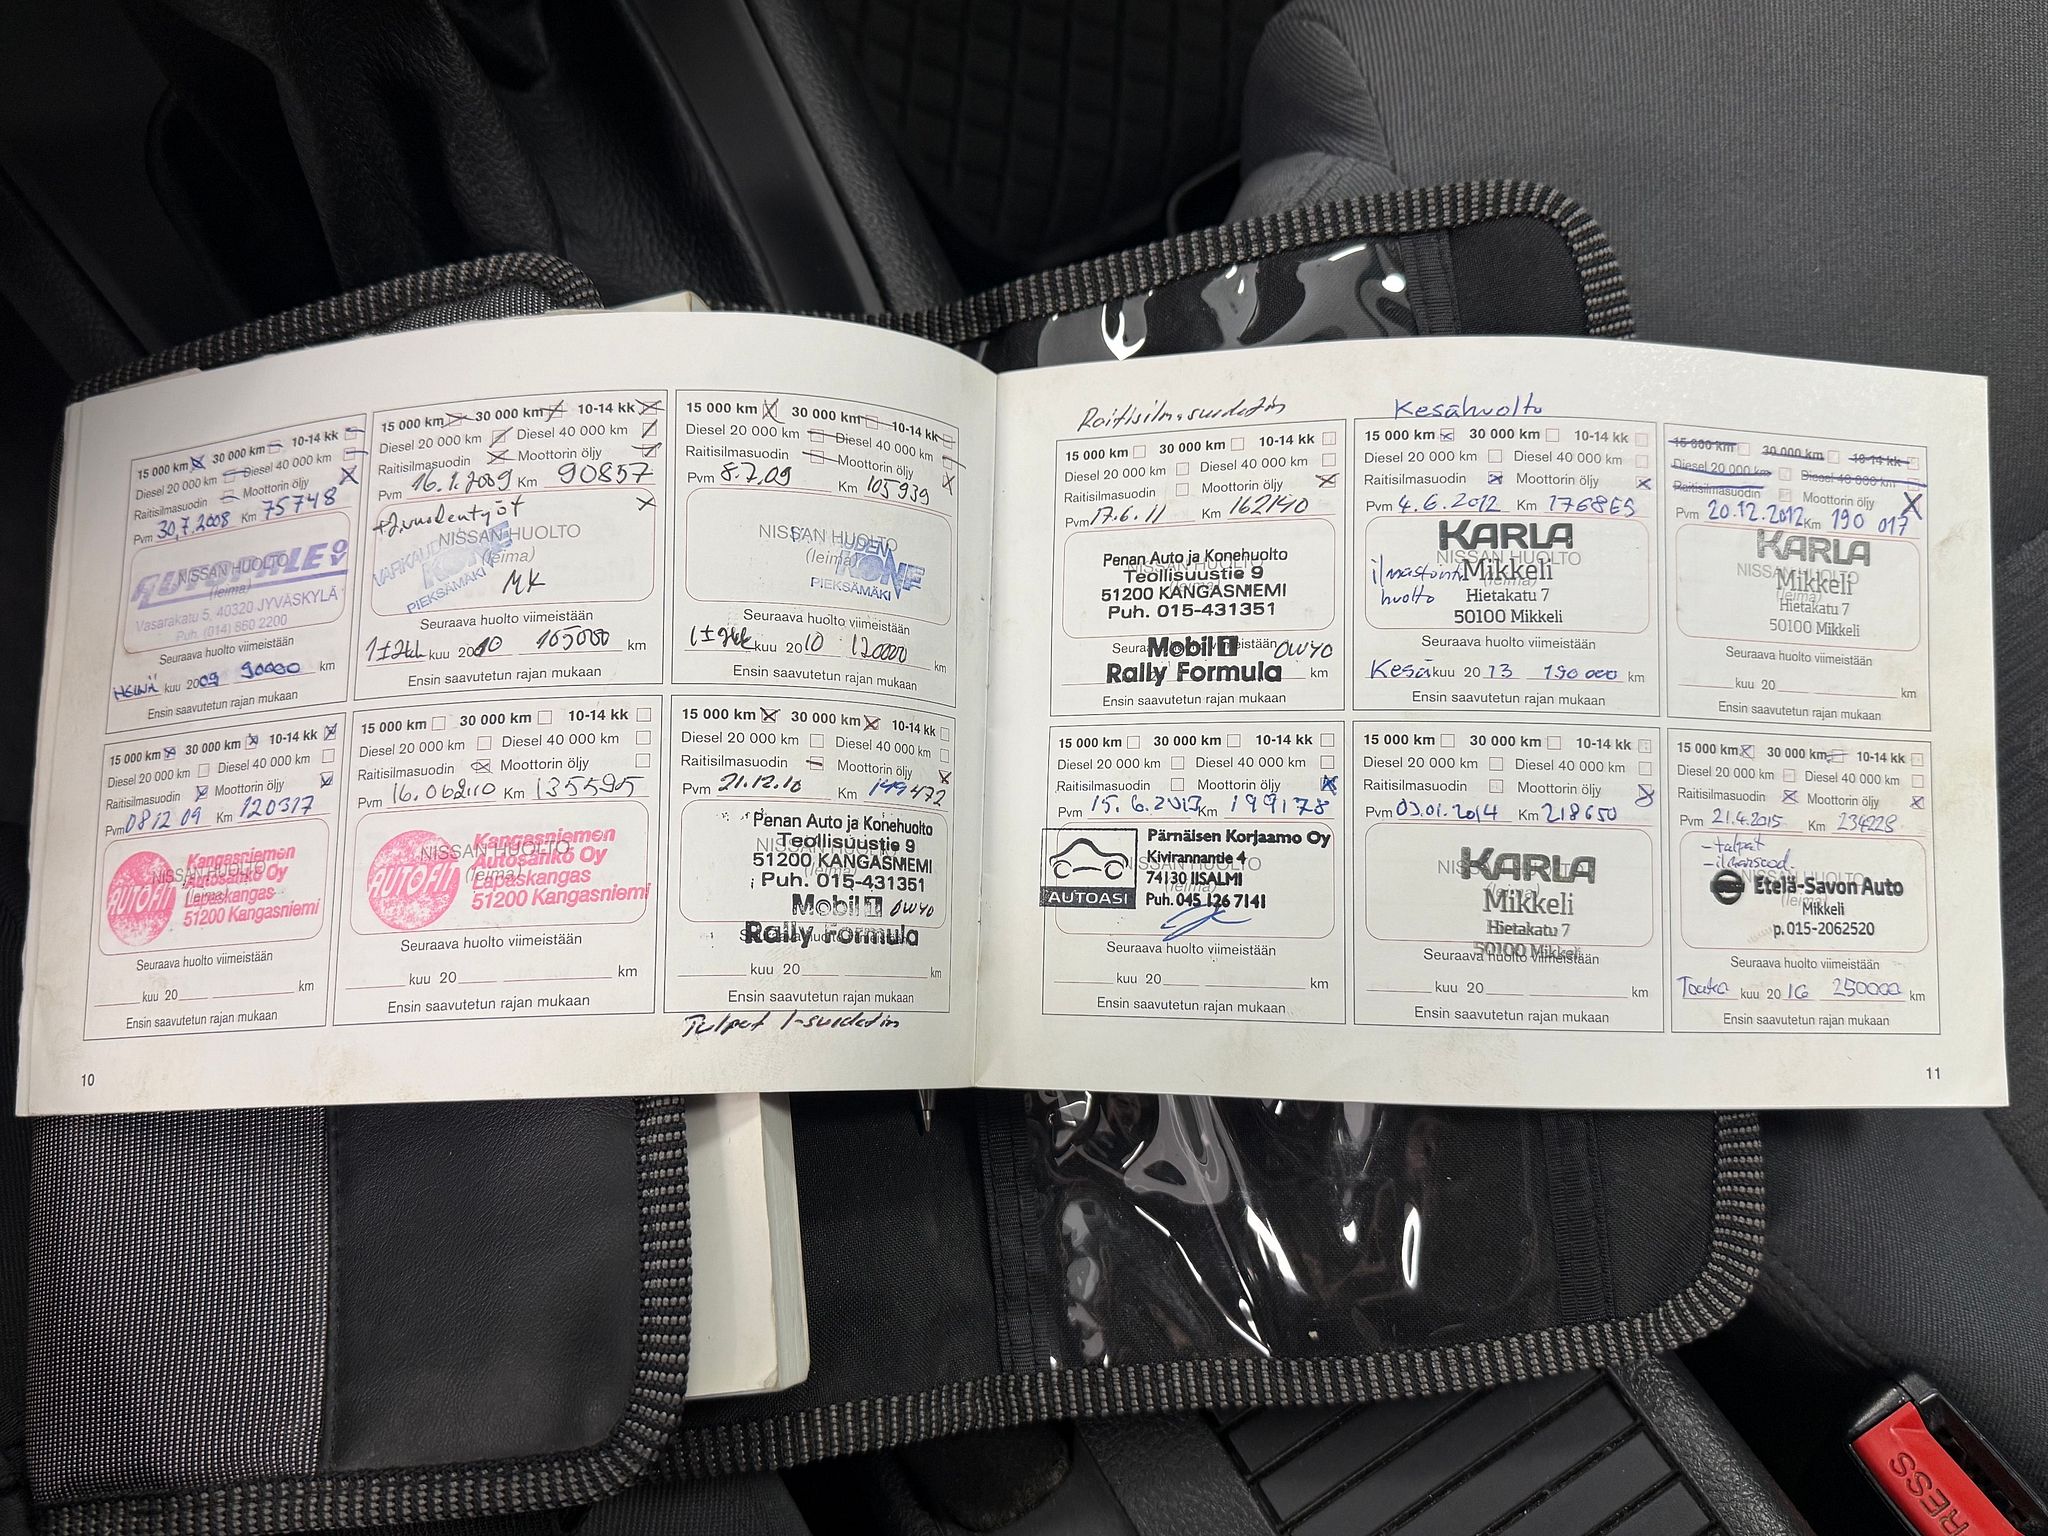 15 000 km 30 000 km 10-14 kk
Diesel 20 000 km Diesel 40 000 km
Raitisilmasuodin Moottorin öljy
Pvm 30.7.2008 Km 75748
NISSAN HUOLTO
(leima)
AUTOPALE OY
Vasarakatu 5, 40320 JYVÄSKYLÄ
Puh. (014) 860 2200
Seuraava huolto viimeistään
Heinä kuu 2009 90000 km
Ensin saavutetun rajan mukaan
15 000 km 30 000 km 10-14 kk
Diesel 20 000 km Diesel 40 000 km
Raitisilmasuodin Moottorin öljy
Pvm 16.1.2009 Km 90857
+2.vuodentyöt
NISSAN HUOLTO
(leima)
VARKAUDEN
KONE
PIEKSÄMÄKI
MK
Seuraava huolto viimeistään
1±2kk kuu 2010 105000 km
Ensin saavutetun rajan mukaan
15 000 km 30 000 km 10-14 kk
Diesel 20 000 km Diesel 40 000 km
Raitisilmasuodin Moottorin öljy
Pvm 8.7.09 Km 105939
NISSAN HUOLTO
(leima)
KONE
PIEKSÄMÄKI
Seuraava huolto viimeistään
1±2kk kuu 2010 120000 km
Ensin saavutetun rajan mukaan
15 000 km 30 000 km 10-14 kk
Diesel 20 000 km Diesel 40 000 km
Raitisilmasuodin Moottorin öljy
Pvm 08.12.09 Km 120317
NISSAN HUOLTO
(leima)
AUTOFIT
Kangasniemen
Autosähkö Oy
Lapaskangas
51200 Kangasniemi
Seuraava huolto viimeistään
kuu 20 km
Ensin saavutetun rajan mukaan
15 000 km 30 000 km 10-14 kk
Diesel 20 000 km Diesel 40 000 km
Raitisilmasuodin Moottorin öljy
Pvm 16.06.2010 Km 135595
NISSAN HUOLTO
(leima)
AUTOFIT
Kangasniemen
Autosähkö Oy
Lapaskangas
51200 Kangasniemi
Seuraava huolto viimeistään
kuu 20 km
Ensin saavutetun rajan mukaan
15 000 km 30 000 km 10-14 kk
Diesel 20 000 km Diesel 40 000 km
Raitisilmasuodin Moottorin öljy
Pvm 21.12.10 Km 149472
Penan Auto ja Konehuolto
Teollisuustie 9
51200 KANGASNIEMI
Puh. 015-431351
Mobil 1 0W40
Rally Formula
Seuraava huolto viimeistään
kuu 20 km
Ensin saavutetun rajan mukaan
Tulpat I-suodatin
10
Raitisilmasuodatin
15 000 km 30 000 km 10-14 kk
Diesel 20 000 km Diesel 40 000 km
Raitisilmasuodin Moottorin öljy
Pvm 17.6.11 Km 162140
Penan Auto ja Konehuolto
Teollisuustie 9
51200 KANGASNIEMI
Puh. 015-431351
Seuraava huolto viimeistään
Mobil 1 0W40
Rally Formula km
Ensin saavutetun rajan mukaan
Kesähuolto
15 000 km 30 000 km 10-14 kk
Diesel 20 000 km Diesel 40 000 km
Raitisilmasuodin Moottorin öljy
Pvm 4.6.2012 Km
KARLA
NISSAN HUOLTO
(leima)
Mikkeli
Hietakatu 7
50100 Mikkeli
ilmastointi
huolto
Seuraava huolto viimeistään
Kesä kuu 2013 190000 km
Ensin saavutetun rajan mukaan
15 000 km 30 000 km 10-14 kk
Diesel 20 000 km Diesel 40 000 km
Raitisilmasuodin Moottorin öljy
Pvm 20.12.2012 Km 190 017
KARLA
NISSAN HUOLTO
(leima)
Mikkeli
Hietakatu 7
50100 Mikkeli
Seuraava huolto viimeistään
kuu 20 km
Ensin saavutetun rajan mukaan
15 000 km 30 000 km 10-14 kk
Diesel 20 000 km Diesel 40 000 km
Raitisilmasuodin Moottorin öljy
Pvm 15.6.2013 Km 199178
AUTOASI
Pärnäisen Korjaamo Oy
Kivirannantie 4
74130 IISALMI
Puh. 045 126 7141
NISSAN HUOLTO
(leima)
Seuraava huolto viimeistään
kuu 20 km
Ensin saavutetun rajan mukaan
15 000 km 30 000 km 10-14 kk
Diesel 20 000 km Diesel 40 000 km
Raitisilmasuodin Moottorin öljy
Pvm 03.01.2014 Km 218650
KARLA
NISSAN HUOLTO
(leima)
Mikkeli
Hietakatu 7
50100 Mikkeli
Seuraava huolto viimeistään
kuu 20 km
Ensin saavutetun rajan mukaan
15 000 km 30 000 km 10-14 kk
Diesel 20 000 km Diesel 40 000 km
Raitisilmasuodin Moottorin öljy
Pvm 21.4.2015 Km 234228
-tulpat
-ilmansuod.
NISSAN HUOLTO
(leima)
Etelä-Savon Auto
Mikkeli
p. 015-2062520
Seuraava huolto viimeistään
Touko kuu 2016 250000 km
Ensin saavutetun rajan mukaan
11
PRESS